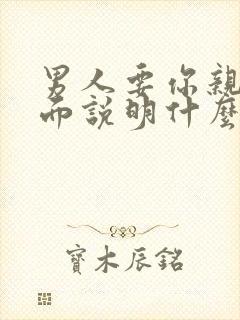 男人要你親
而說明什麼
寶木辰銘